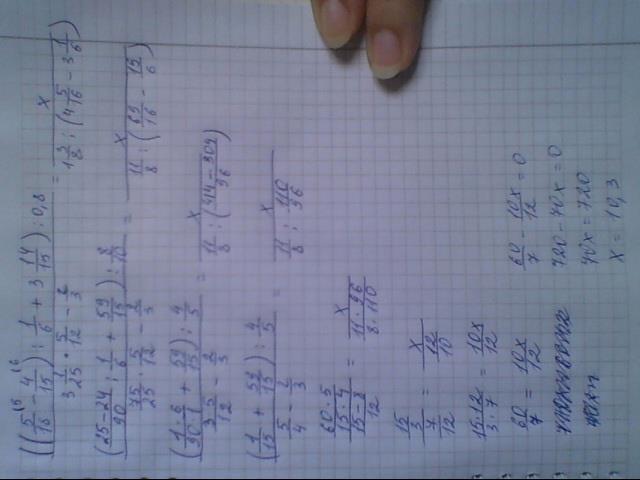 ((5/15 - 4/15) : 1/6 + 3 14/15) : 0,8 / 3 3/25 · 5/12 - 2/3 = x / 1 3/8 : (4 5/16 - 3 1/6)
(25-24/90 : 1/6 + 59/15) : 8/10 / 75/25 · 5/12 - 2/3 = x / 11/8 : (69/16 - 19/6)
(1·6/90·1 + 59/15) : 4/5 / 3·5/12 - 2/3 = x / 11/8 : (414-304/96)
(1/15 + 59/15) : 4/5 / 5/4 - 2/3 = x / 11/8 : 110/96
60·5/15·4 / 15-8/12 = x / 11·96/8·110
15/3 / 7/12 = x / 12/10
15·12/3·7 = 10x/12
60/7 = 10x/12
60/7 - 10x/12 = 0
720 - 70x = 0
70x = 720
x = 10,3